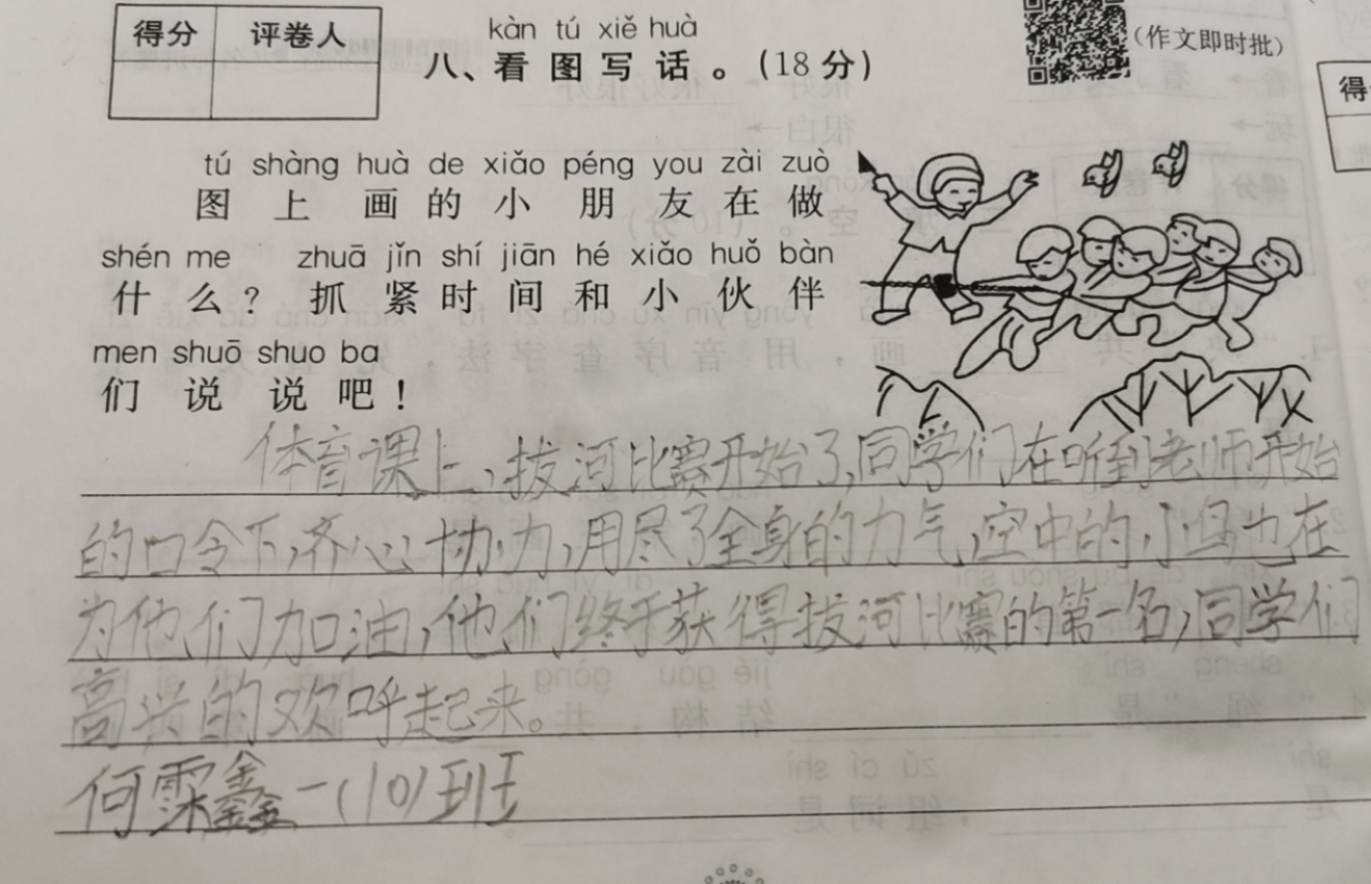 得分 评卷人
kàn tú xiě huà
八、看图写话。(18分)
(作文即时批)
得
tú shàng huà de xiǎo péng you zài zuò
图上画的小朋友在做
shén me zhuā jǐn shí jiān hé xiǎo huǒ bàn
什么?抓紧时间和小伙伴
men shuō shuo ba
们说说吧!
体育课上,拔河比赛开始了,同学们在听到老师开始
的口令下,齐心协力,用尽了全身的力气,空中的小鸟也在
为他们加油,他们终于获得拔河比赛的第一名,同学们
高兴的欢呼起来。
何霂鑫一(10)班